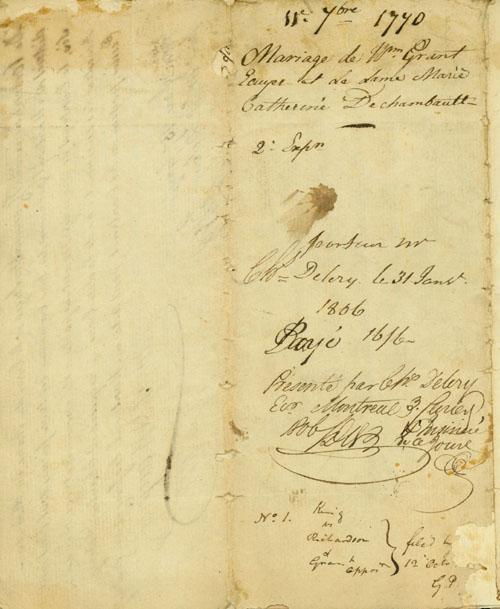 11e 7bre 1770
Mariage de Wm Grant
Ecuyr et de dame Marie
Catherine Dechambault
2e Expn
porteur mr
Chs Delery le 31 Janv.
1806
Payé 16/6
Présenté par Chs Delery
Ecr Montreal 3
No 1. King
vs
Richardson
& Grant
Oppos
filed
12 Octo